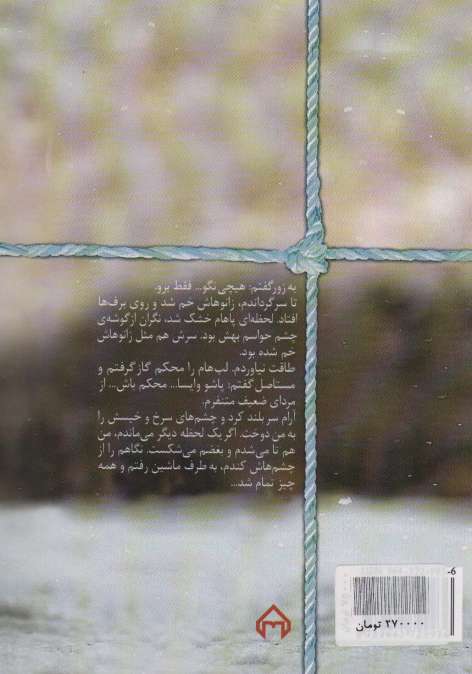 به زور گفتم: هیچی نگو... فقط برو.
تا سر گرداندم، زانوهاش خم شد و روی برف‌ها
افتاد. لحظه‌ای پاهام خشک شد، نگران از گوشه‌ی
چشم حواسم بهش بود. سرش هم مثل زانوهاش
خم شده بود.
طاقت نیاوردم. لب‌هام را محکم گاز گرفتم و
مستاصل گفتم: پاشو وایسا... محکم باش... از
مردای ضعیف متنفرم.
آرام سر بلند کرد و چشم‌های سرخ و خیسش را
به من دوخت. اگر یک لحظه دیگر می‌ماندم، من
هم تا می‌شدم و بغضم می‌شکست. نگاهم را از
چشم‌هاش کندم، به طرف ماشین رفتم و همه
چیز تمام شد...
۲۷۰۰۰۰ تومان